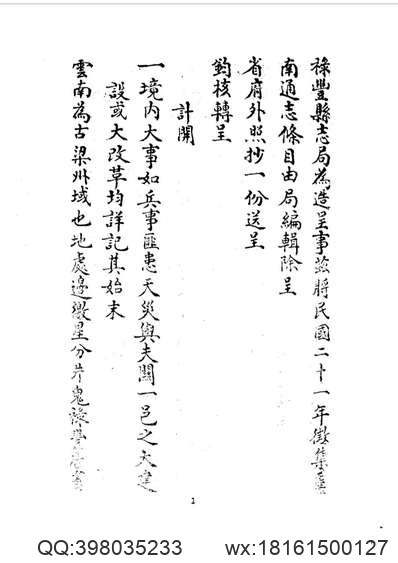 祿豐縣志局為造呈事茲將民國二十一年徵集雲
南通志條目由局編輯除呈
省府外照抄一份送呈
鈞核轉呈
計開
一境内大事如兵事匪患天災與夫關一邑之大建
設或大改革均詳記其始末
雲南為古梁州域也地處邊徼星分井鬼祿
1
QQ:398035233 wx:18161500127